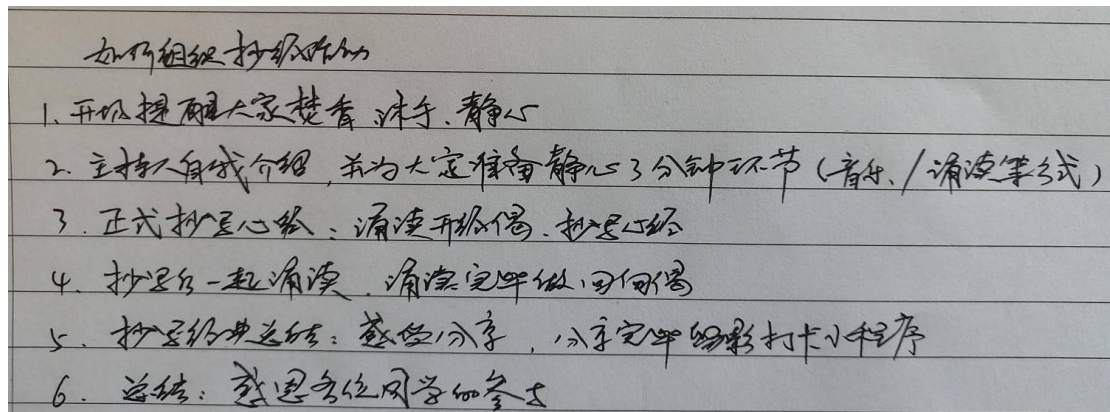 如何组织抄经活动
1、开场提醒大家焚香、沐手、静心
2、主持人自我介绍,并为大家准备静心3分钟环节(音乐、/诵读等方式)
3. 正式抄写心经:诵读开经偈、抄写心经
4. 抄写后一起诵读、诵读完毕做回向偈
5. 抄写经典总结:感受分享,分享完毕 打卡小程序
6. 总结:感恩各位同学的参与